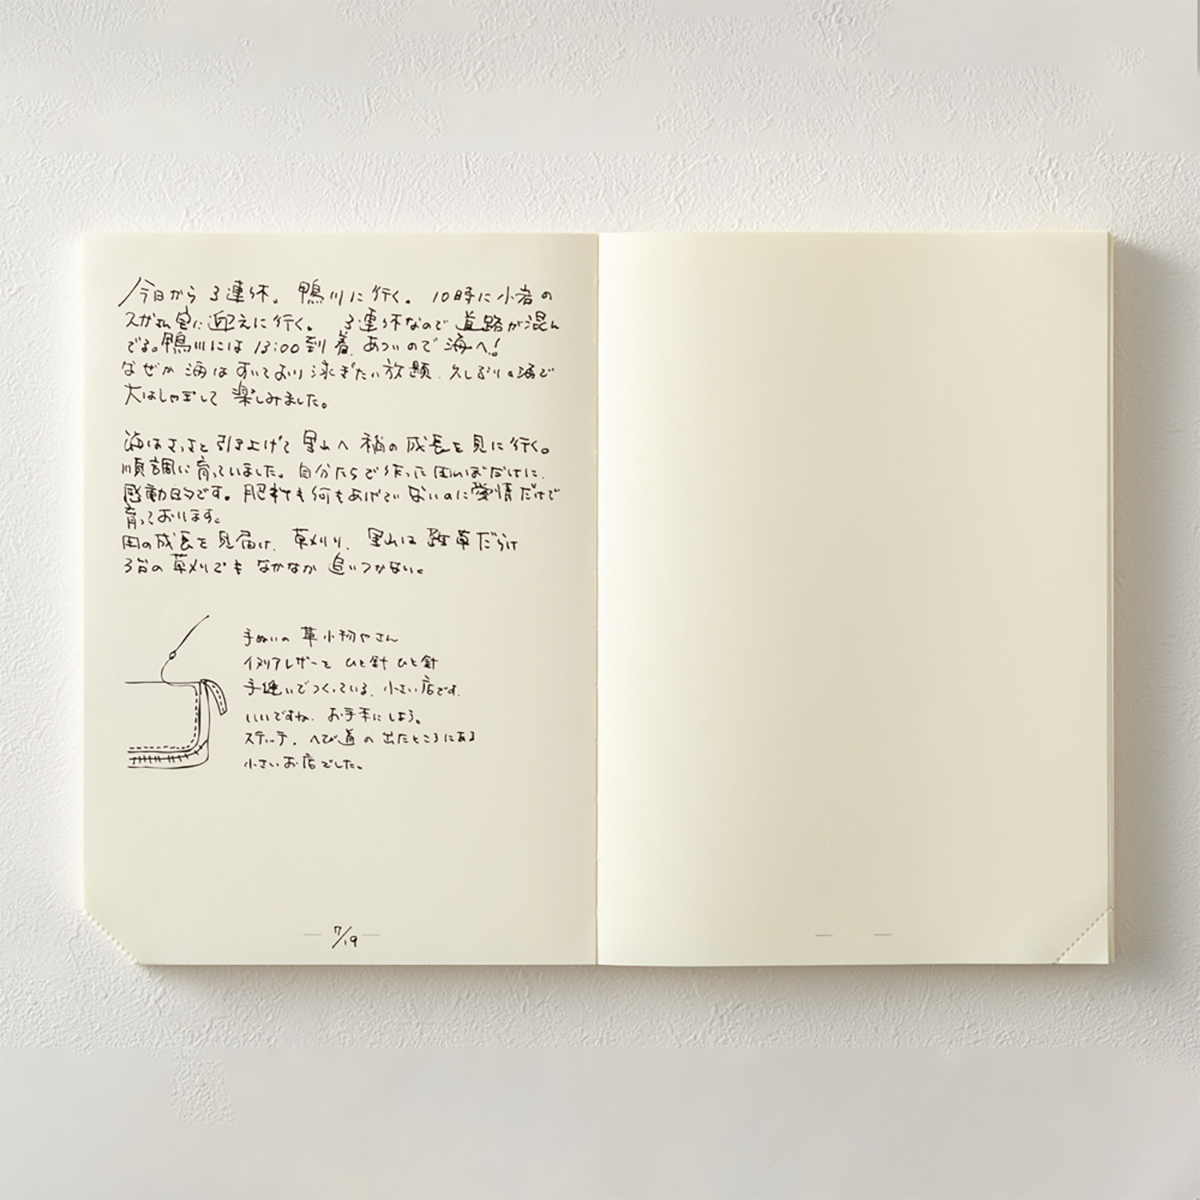 今日から3連休。鴨川に行く。10時に小岩の
スガさん宅に迎えに行く。3連休なので道路が混ん
でる。鴨川には13:00到着、あついので海へ!
なぜか海はすいており泳ぎたい放題、久しぶりの海で
大はしゃぎして楽しみました。
海はさっさと引き上げて里山へ 稲の成長を見に行く。
順調に育っていました。自分たちで作った田んぼだけに、
感動的です。肥料も何もあげていないのに愛情だけで
育っております。
田の成長を見届け、草刈り、里山は雑草だらけ
3台の草刈りでもなかなか追いつかない。
手ぬいの革小物やさん
イタリアレザーを ひと針 ひと針
手縫いでつくっている、小さい店です。
いいですね、お手本にしよう。
ステッチ。へび道の出たところにある
小さいお店でした。
7/19